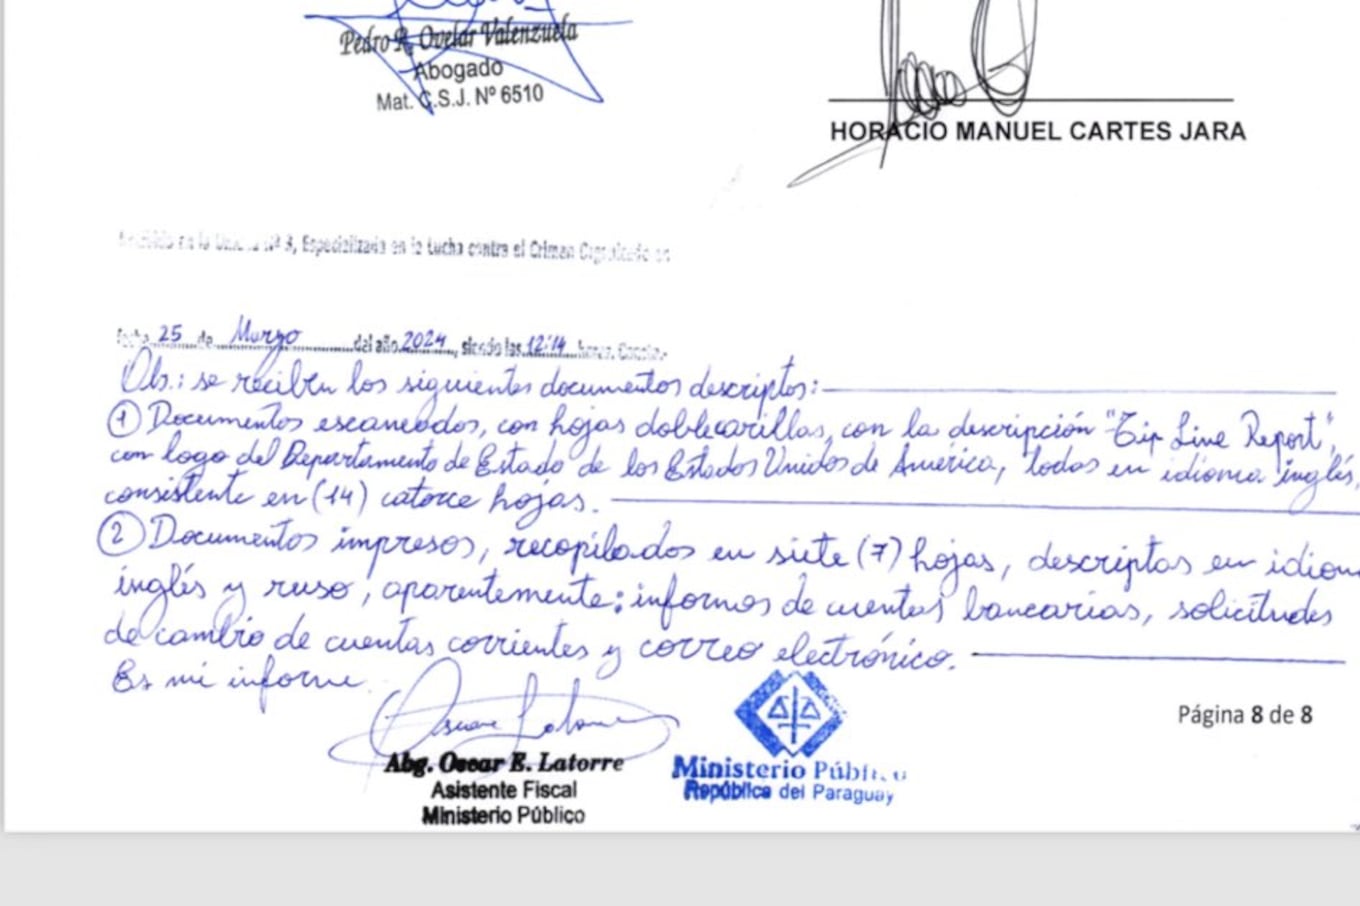 Pedro R. Ovelar Valenzuela
Abogado
Mat. C.S.J. Nº 6510
HORACIO MANUEL CARTES JARA
en la Nº 3, Especializada en la Lucha contra el Crimen Organizado en
fecha 25 de Marzo del año 2024, siendo las 12:14 horas. Conste.-
Obs.: se reciben los siguientes documentos descriptos:
① Documentos escaneados, con hojas doblecarillas, con la descripción "Tip Line Report",
con logo del Departamento de Estado de los Estados Unidos de América, todas en idioma inglés,
consistente en (14) catorce hojas.
② Documentos impresos, recopilados en siete (7) hojas, descriptas en idiom
inglés y ruso, aparentemente: informes de cuentas bancarias, solicitudes
de cambio de cuentas corrientes y correo electrónico.
Es mi informe.
Oscar Latorre
Abg. Oscar E. Latorre
Asistente Fiscal
Ministerio Público
Ministerio Público
República del Paraguay
Página 8 de 8